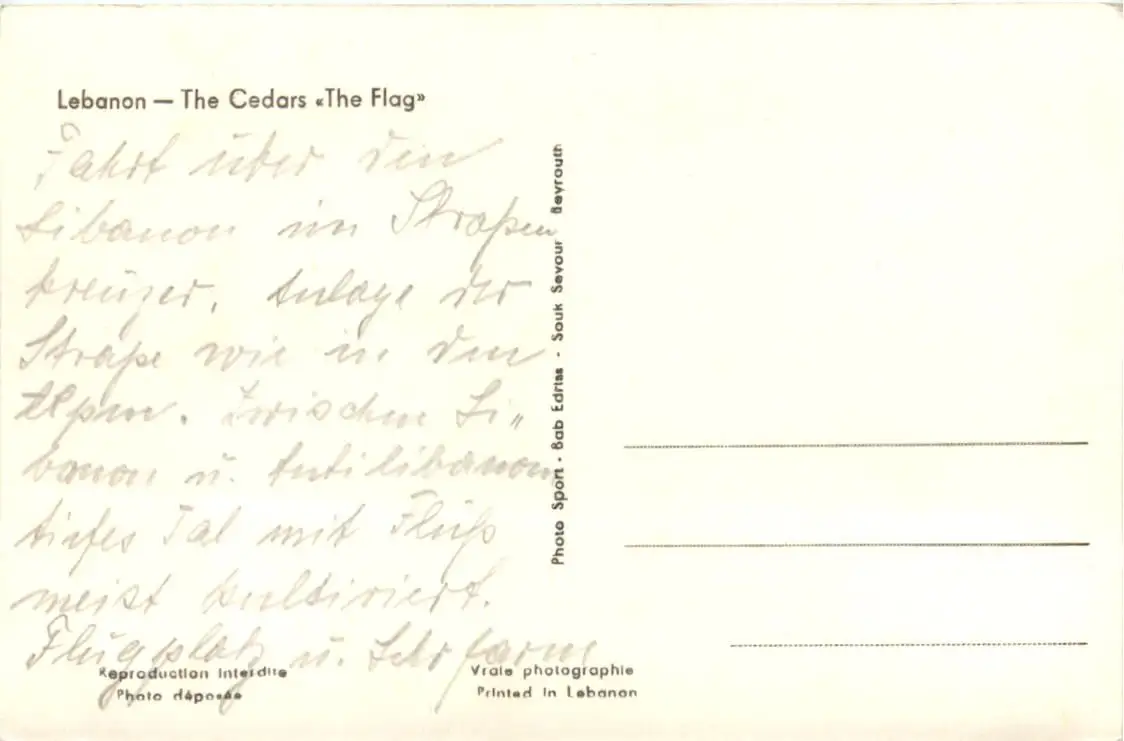 Lebanon — The Cedars «The Flag»
Fahrt über den
Libanon im Straßen
kreuzer, Anlage der
Straße wie in den
Alpen. Zwischen Li„
banon u. Antilibanon
tiefes Tal mit Fluß
meist kultiviert.
Flugplatz u.
Photo Sport - Bab Edriss - Souk Sayour Beyrouth
Reproduction interdite
Photo déposée
Vraie photographie
Printed in Lebanon